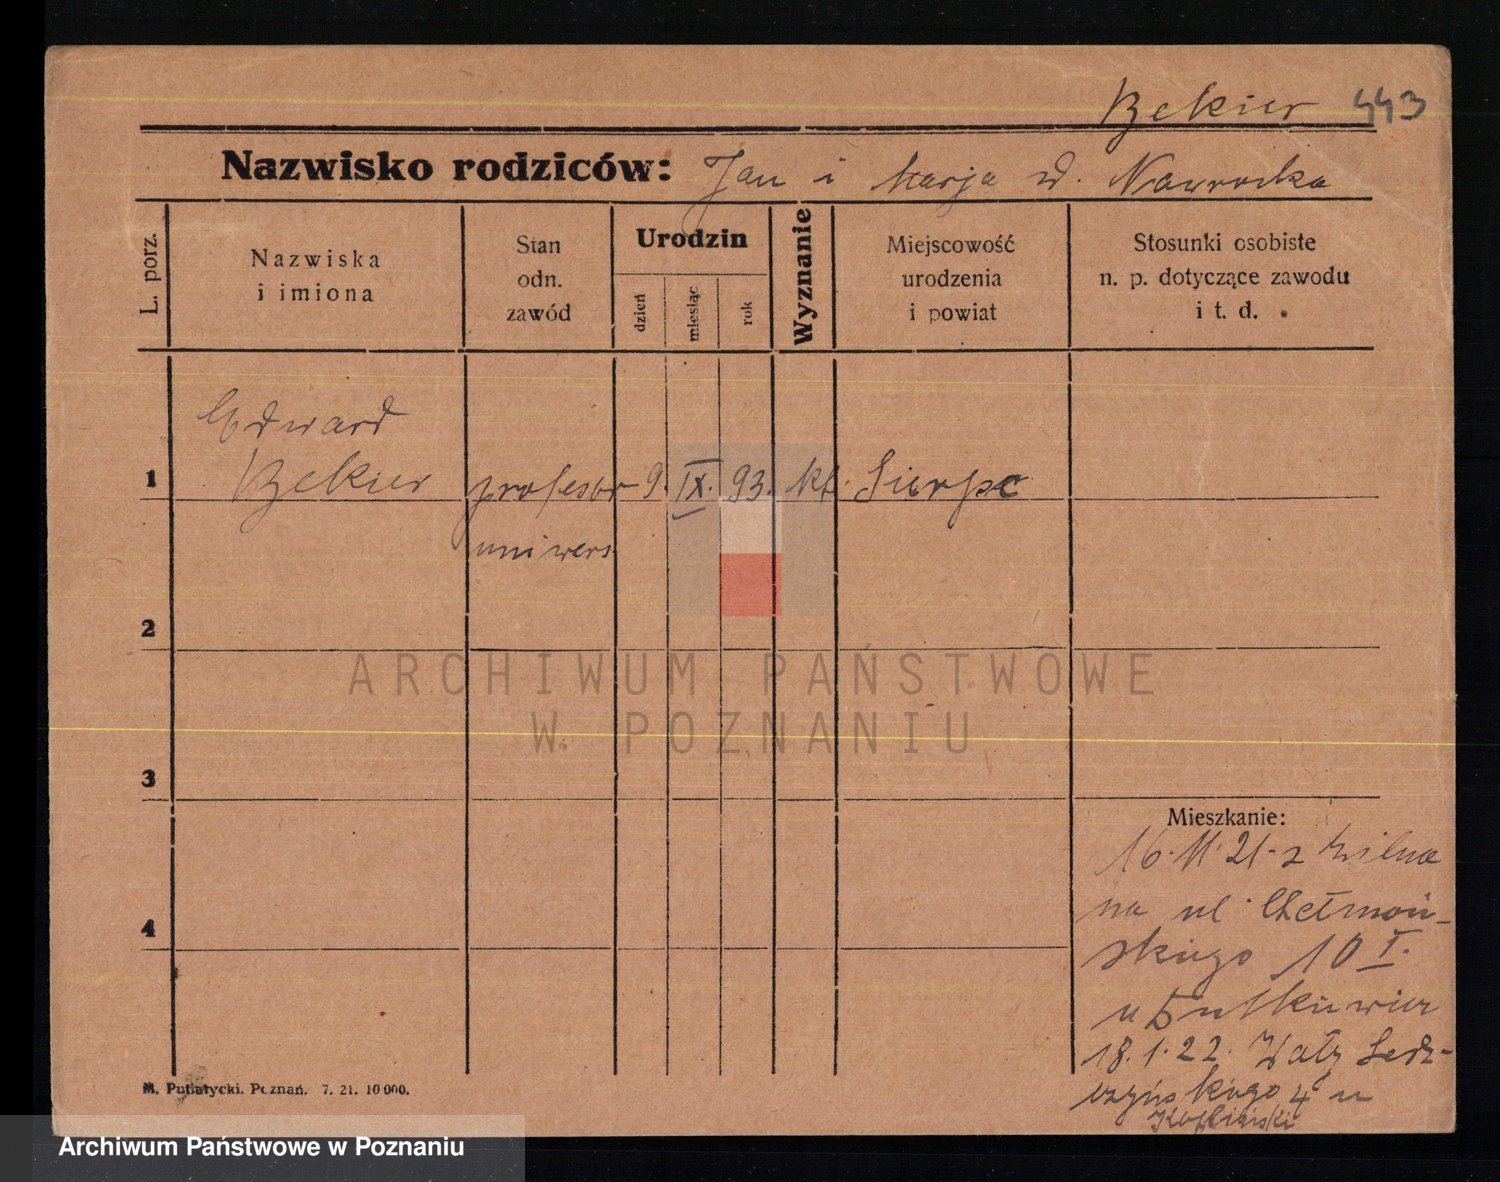 Bekier 443
Nazwisko rodziców: Jan i Marja d. Nawrocka
L. porz.
Nazwiska
i imiona
Stan
odn.
zawód
Urodzin
dzień
miesiąc
rok
Wyznanie
Miejscowość
urodzenia
i powiat
Stosunki osobiste
n. p. dotyczące zawodu
i t. d.
Edward
1 Bekier profesor 9. IX. 93. kt. Sierpc
uniwers.
2
ARCHIWUM PAŃSTWOWE
W POZNANIU
3
Mieszkanie:
16.11.21. z Wilna
na ul. Chełmoń-
4
skiego 10 I.
u
18.1.22. Wały
4 u
M. Putiatycki. Poznań. 7. 21. 10 000.
Archiwum Państwowe w Poznaniu